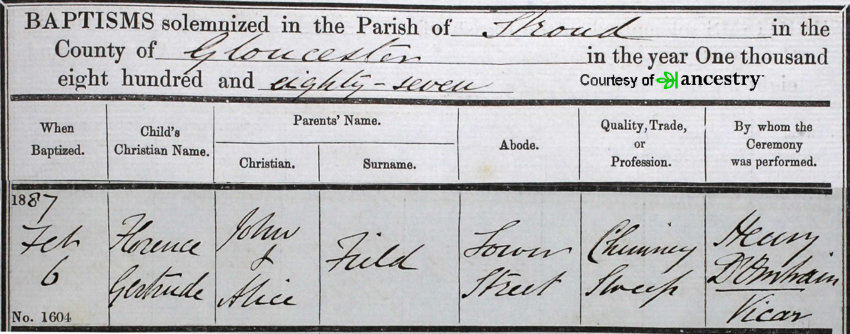 BAPTISMS solemnized in the Parish of Stroud in the
County of Gloucester in the year One thousand
eight hundred and eighty-seven
Courtesy of ancestry
When Baptized.
Child's Christian Name.
Parents' Name.
Christian.
Surname.
Abode.
Quality, Trade, or Profession.
By whom the Ceremony was performed.
1887
Feb
6
No. 1604
Florence
Gertrude
John
&
Alice
Field
Lower
Street
Chimney
Sweep
Henry
Vicar